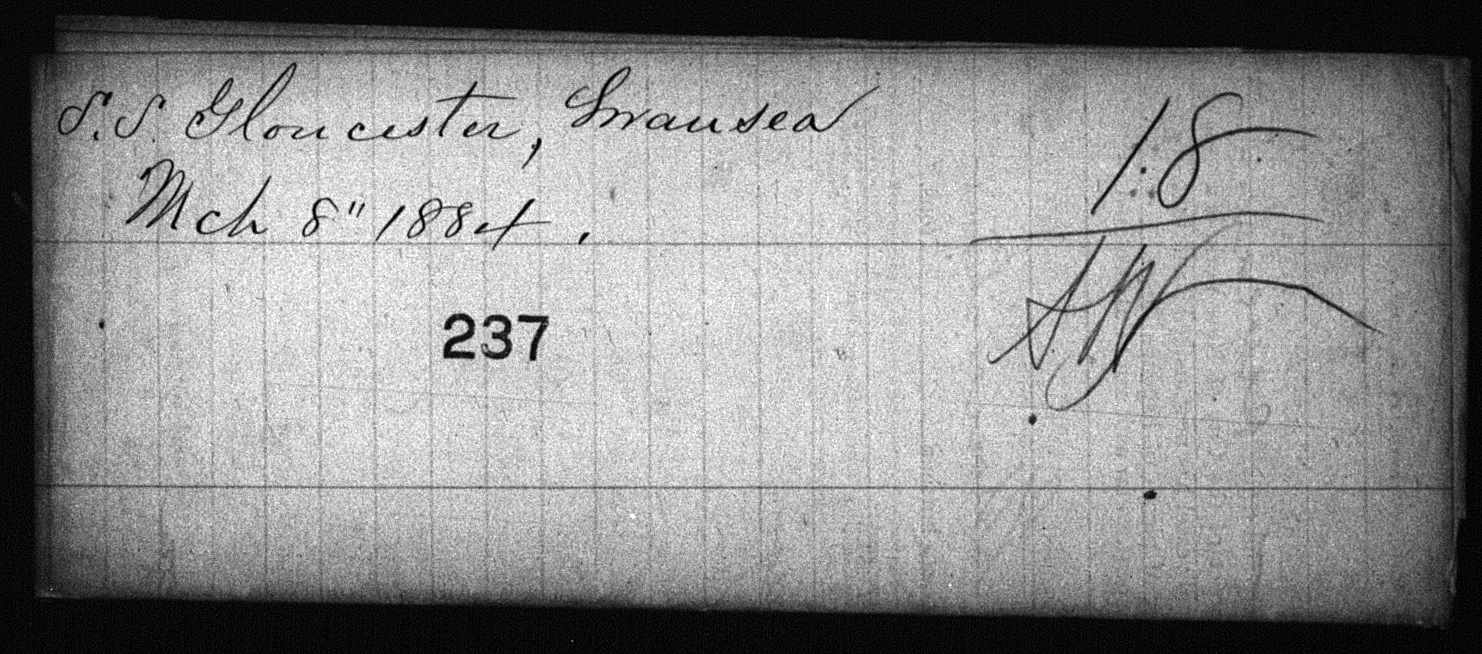 S.S. Gloucester, Swansea
Mch 8" 1884.
1.8
237